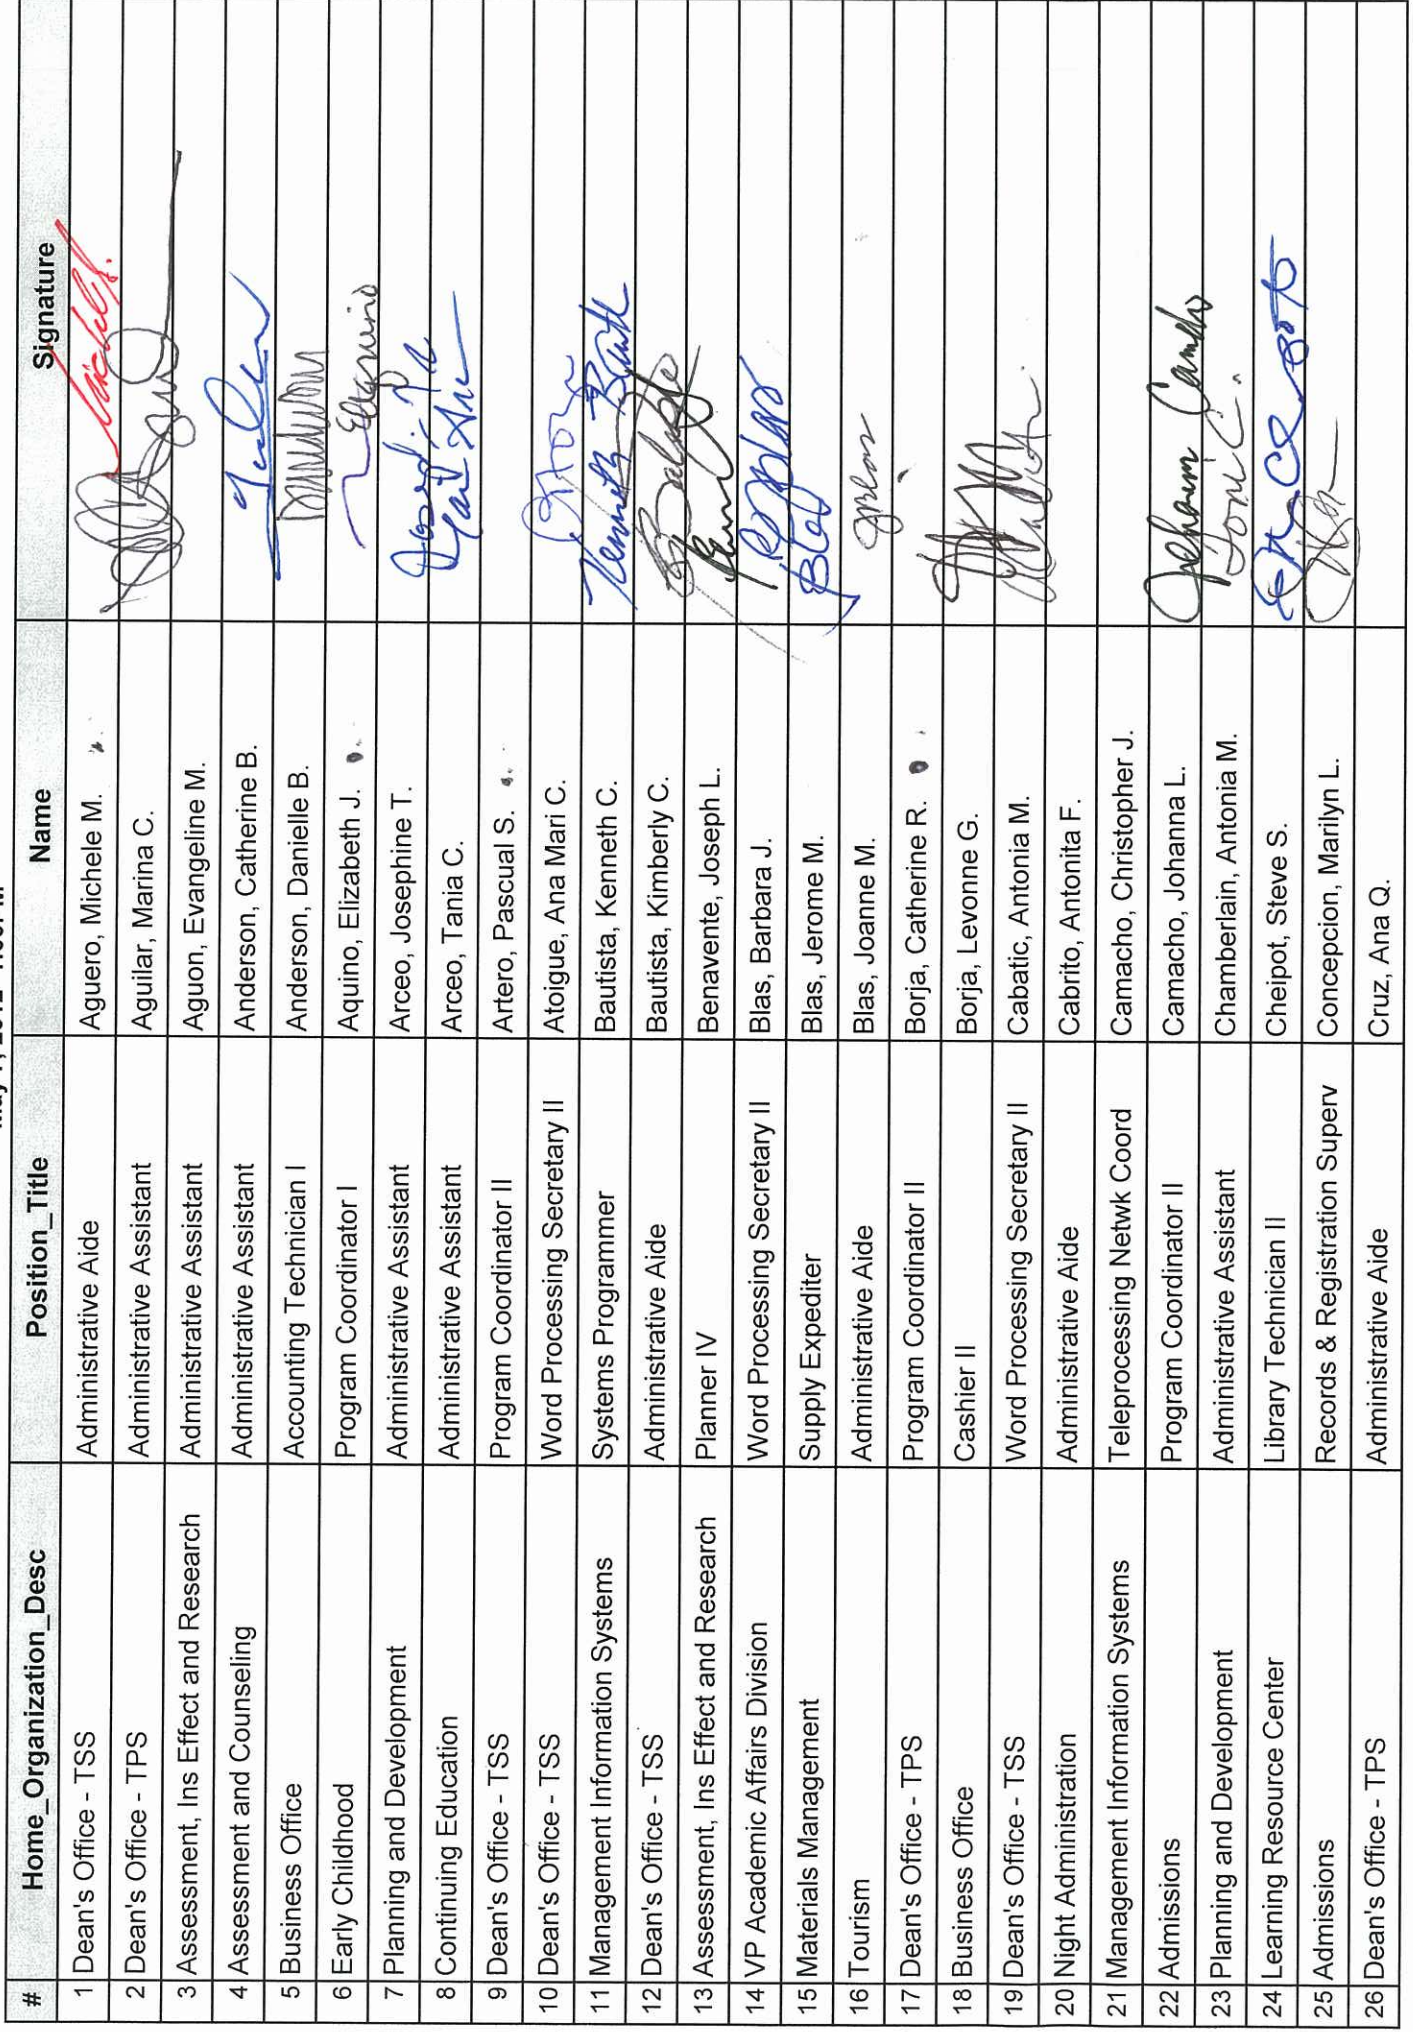 # Home_Organization_Desc Position_Title Name Signature
1 Dean's Office - TSS Administrative Aide Aguero, Michele M.
2 Dean's Office - TPS Administrative Assistant Aguilar, Marina C.
3 Assessment, Ins Effect and Research Administrative Assistant Aguon, Evangeline M.
4 Assessment and Counseling Administrative Assistant Anderson, Catherine B.
5 Business Office Accounting Technician I Anderson, Danielle B.
6 Early Childhood Program Coordinator I Aquino, Elizabeth J.
7 Planning and Development Administrative Assistant Arceo, Josephine T.
8 Continuing Education Administrative Assistant Arceo, Tania C.
9 Dean's Office - TSS Program Coordinator II Artero, Pascual S.
10 Dean's Office - TSS Word Processing Secretary II Atoigue, Ana Mari C.
11 Management Information Systems Systems Programmer Bautista, Kenneth C.
12 Dean's Office - TSS Administrative Aide Bautista, Kimberly C.
13 Assessment, Ins Effect and Research Planner IV Benavente, Joseph L.
14 VP Academic Affairs Division Word Processing Secretary II Blas, Barbara J.
15 Materials Management Supply Expediter Blas, Jerome M.
16 Tourism Administrative Aide Blas, Joanne M.
17 Dean's Office - TPS Program Coordinator II Borja, Catherine R.
18 Business Office Cashier II Borja, Levonne G.
19 Dean's Office - TSS Word Processing Secretary II Cabatic, Antonia M.
20 Night Administration Administrative Aide Cabrito, Antonita F.
21 Management Information Systems Teleprocessing Netwk Coord Camacho, Christopher J.
22 Admissions Program Coordinator II Camacho, Johanna L.
23 Planning and Development Administrative Assistant Chamberlain, Antonia M.
24 Learning Resource Center Library Technician II Cheipot, Steve S.
25 Admissions Records & Registration Superv Concepcion, Marilyn L.
26 Dean's Office - TPS Administrative Aide Cruz, Ana Q.